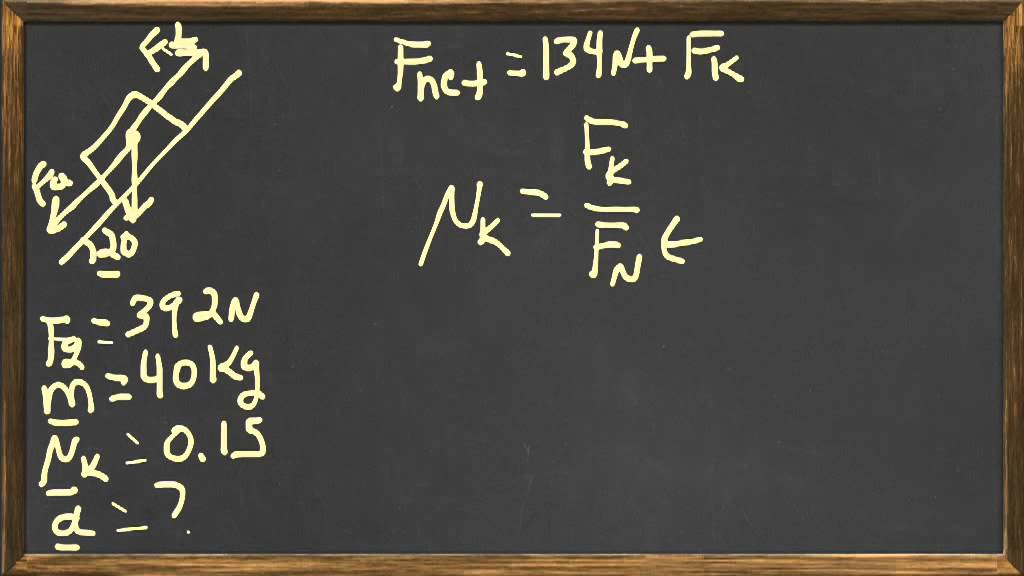 Fk
Fa
20
Fg = 392N
m = 40kg
μk = 0.15
a = ?
Fnet = 134N + Fk
μk = Fk / FN ←